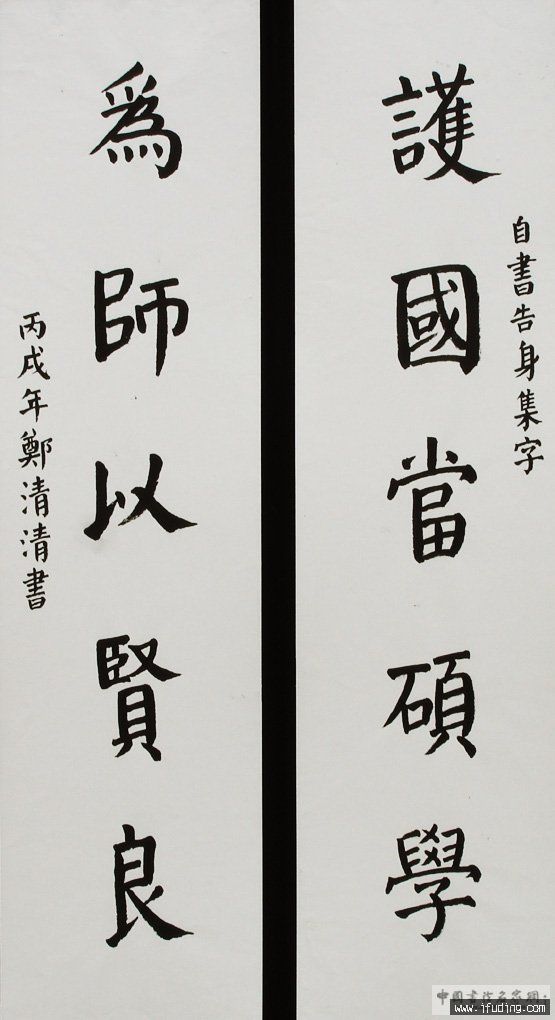 自書告身集字
護國當碩學
為師以賢良
丙戌年鄭清清書
中國書法名家網
www.ifuding.com